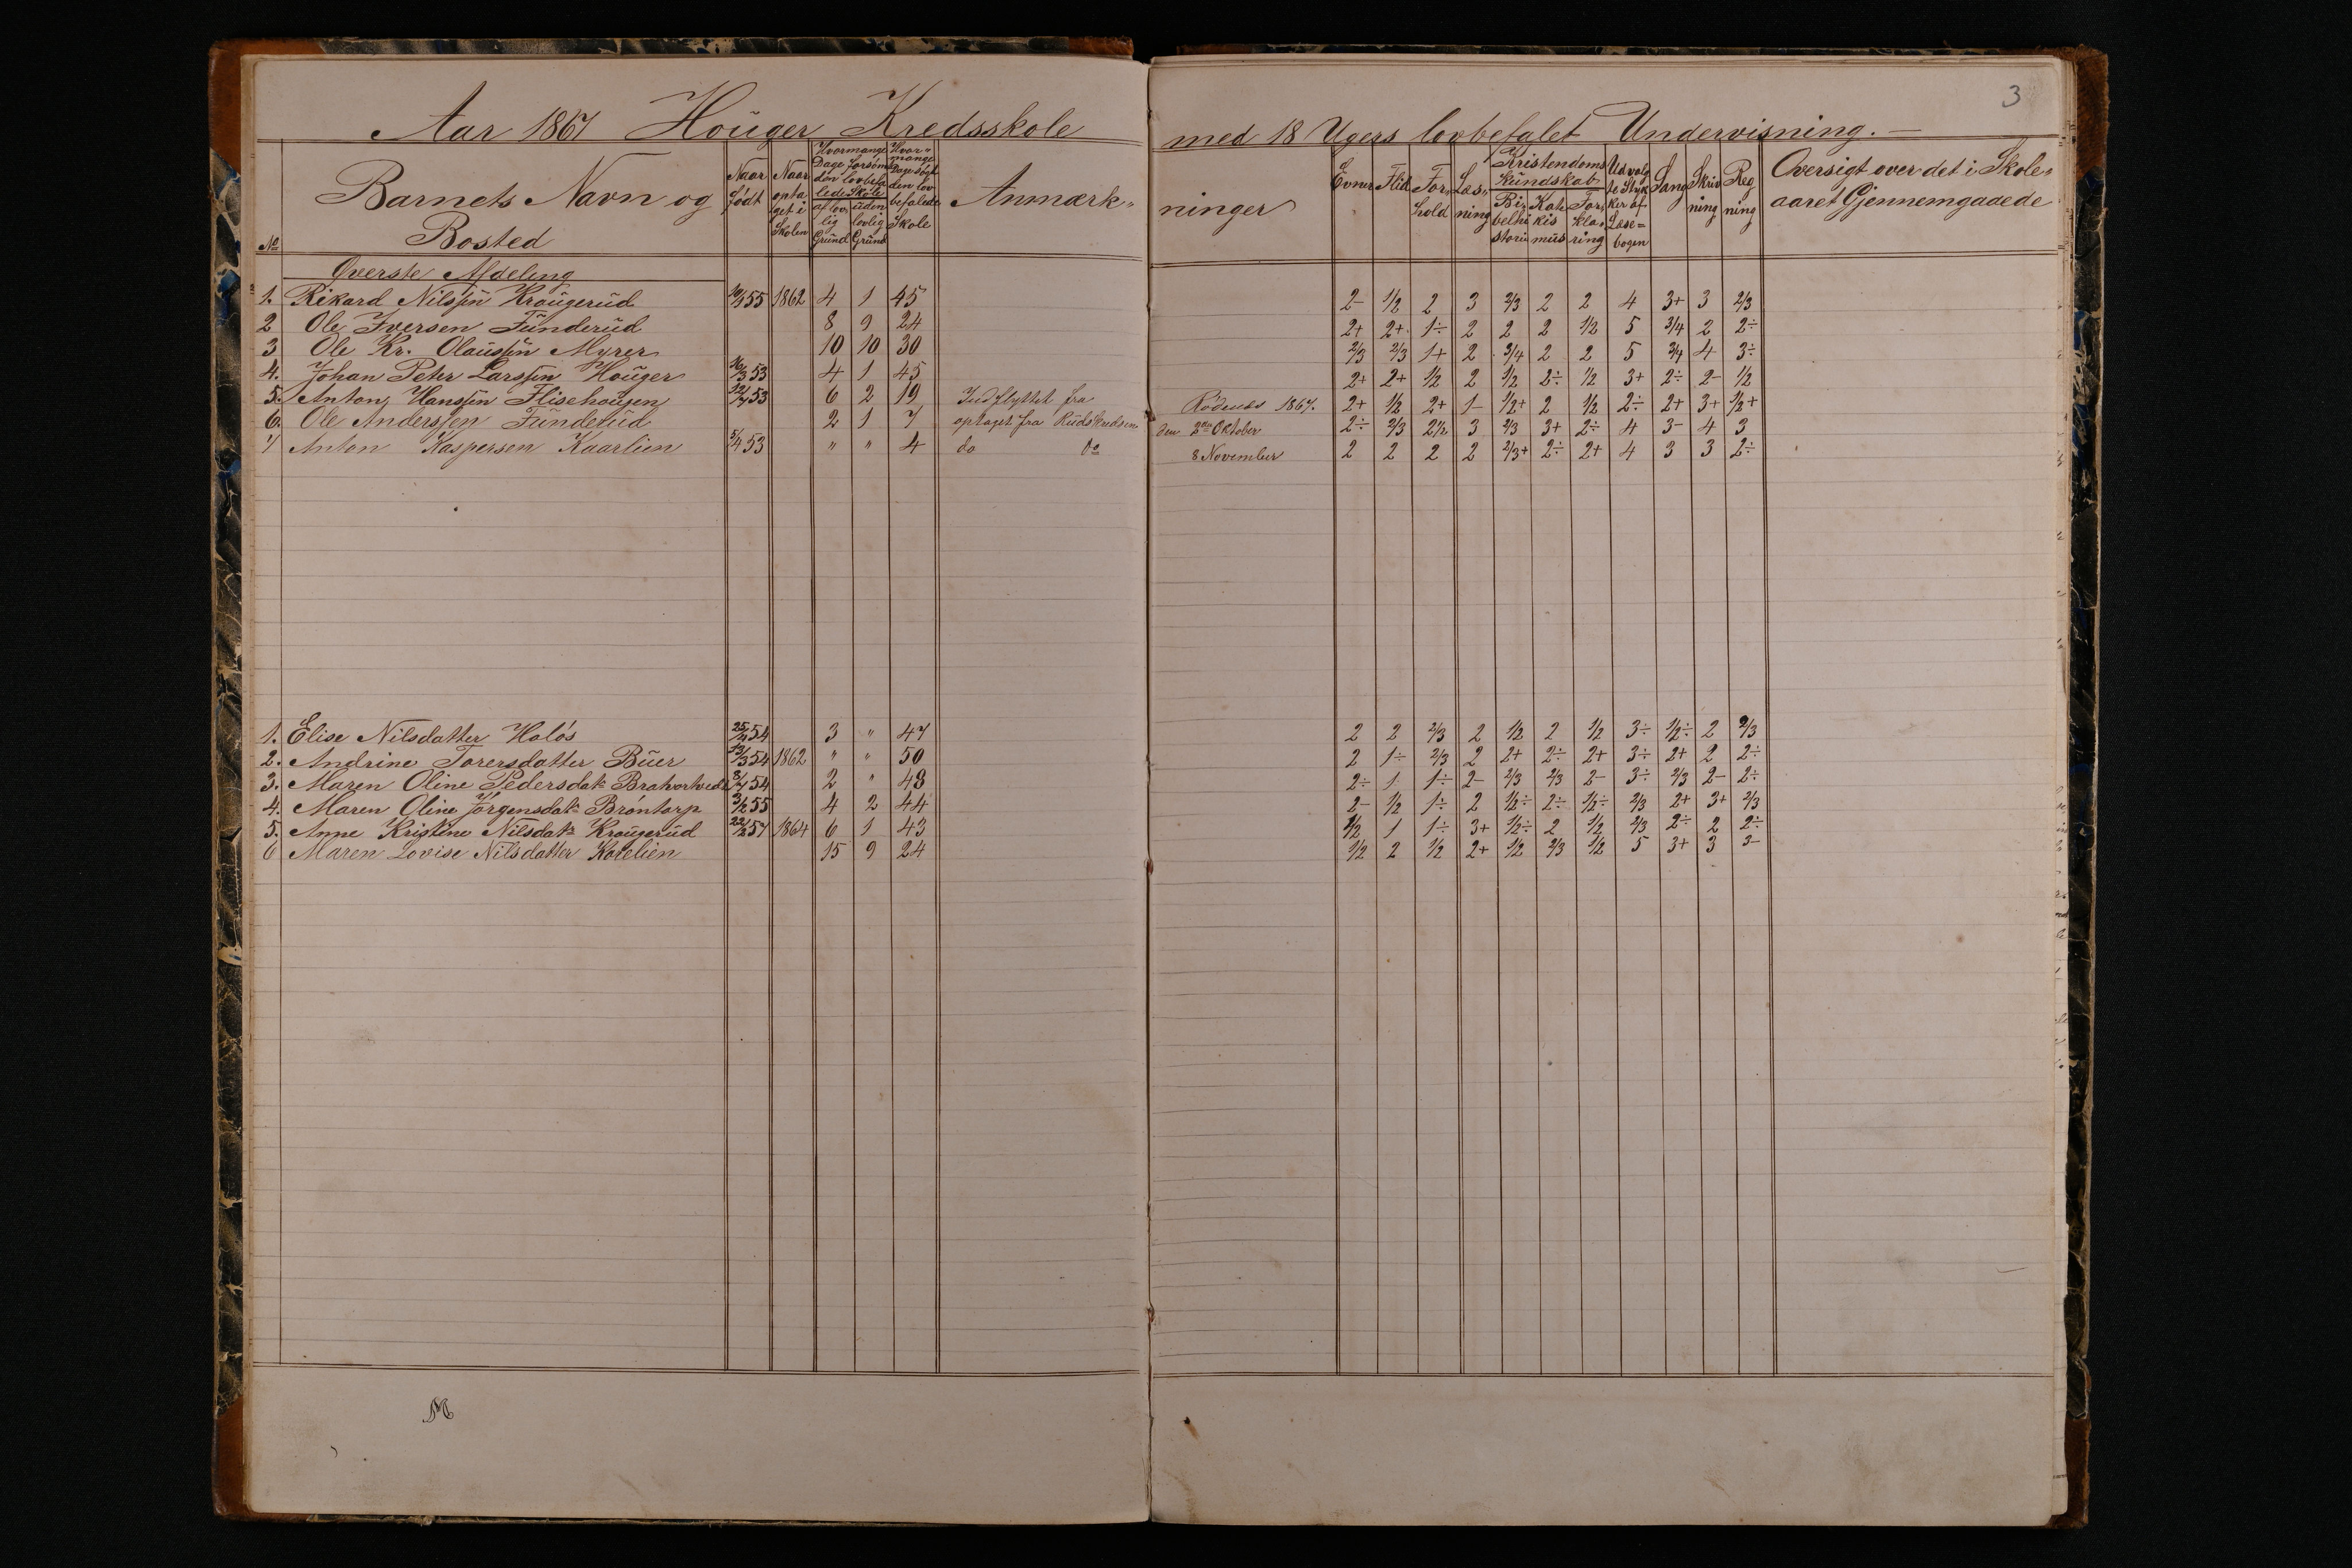 3
Aar 1867 Houger Kredsskole med 18 Ugers lovbefalet Undervisning. —
No Barnets Navn og Bosted | Naar født | Naar optaget i Skolen | Hvormange Dage forsømt den lovbefalede Skole af lovlig Grund | uden lovlig Grund | Hvormange Dage søgt den lovbefalede Skole | Anmærkninger | Evner | Flid | Forhold | Læsning | Kristendomskundskab Bibelhistorie | Katekismus | Forklaring | Udvalgte Stykker af Læsebogen | Sang | Skrivning | Regning | Oversigt over det i Skoleaaret Gjennemgaaede
Øverste Afdeling
1. Rikard Nilssen Kraugerud 10/1 55 1862 4 1 45 2- 1/2 2 3 2/3 2 2 4 3+ 3 2/3
2 Ole Iversen Funderud 8 9 24 2+ 2+ 1÷ 2 2 2 1/2 5 3/4 2 2÷
3 Ole Kr. Olaussen Myrer 10 10 30 2/3 2/3 1+ 2 3/4 2 2 5 3/4 4 3÷
4. Johan Peter Larssen Houger 16/3 53 4 1 45 2+ 2+ 1/2 2 1/2 2÷ 1/2 3+ 2÷ 2- 1/2
5. Anton Hanssen Flisehougen 12/7 53 6 2 19 Indflyttet fra Rødenes 1867. 2+ 1/2 2+ 1- 1/2+ 2 1/2 2÷ 2+ 3+ 1/2+
6. Ole Anderssen Funderud 2 1 7 optaget fra Rudskredsen den 2den Oktober 2÷ 2/3 2 1/2 3 2/3 3+ 2÷ 4 3- 4 3
7 Anton Kaspersen Kaarlien 5/4 53 " " 4 do Do 8 November 2 2 2 2 2/3+ 2÷ 2+ 4 3 3 2÷
1. Elise Nilsdatter Holøs 25/4 54 3 " 47 2 2 2/3 2 1/2 2 1/2 3÷ 1/2÷ 2 2/3
2. Andrine Torersdatter Buer 13/3 54 1862 " " 50 2 1÷ 2/3 2 2+ 2÷ 2+ 3÷ 2+ 2 2÷
3. Maren Oline Pedersdatr 8/7 54 2 " 48 2÷ 1 1÷ 2- 2/3 2/3 2- 3÷ 2/3 2- 2÷
4. Maren Oline Jørgensdatr Brøntorp 3/2 55 4 2 44 2- 1/2 1÷ 2 1/2÷ 2÷ 1/2÷ 2/3 2+ 3+ 2/3
5. Anne Kristine Nilsdatr Kraugerud 22/2 57 1864 6 1 43 1/2 1 1÷ 3+ 1/2÷ 2 1/2 2/3 2÷ 2 2÷
6 Maren Lovise Nilsdatter Korelien 15 9 24 1/2 2 1/2 2+ 1/2 2/3 1/2 5 3+ 3 3-